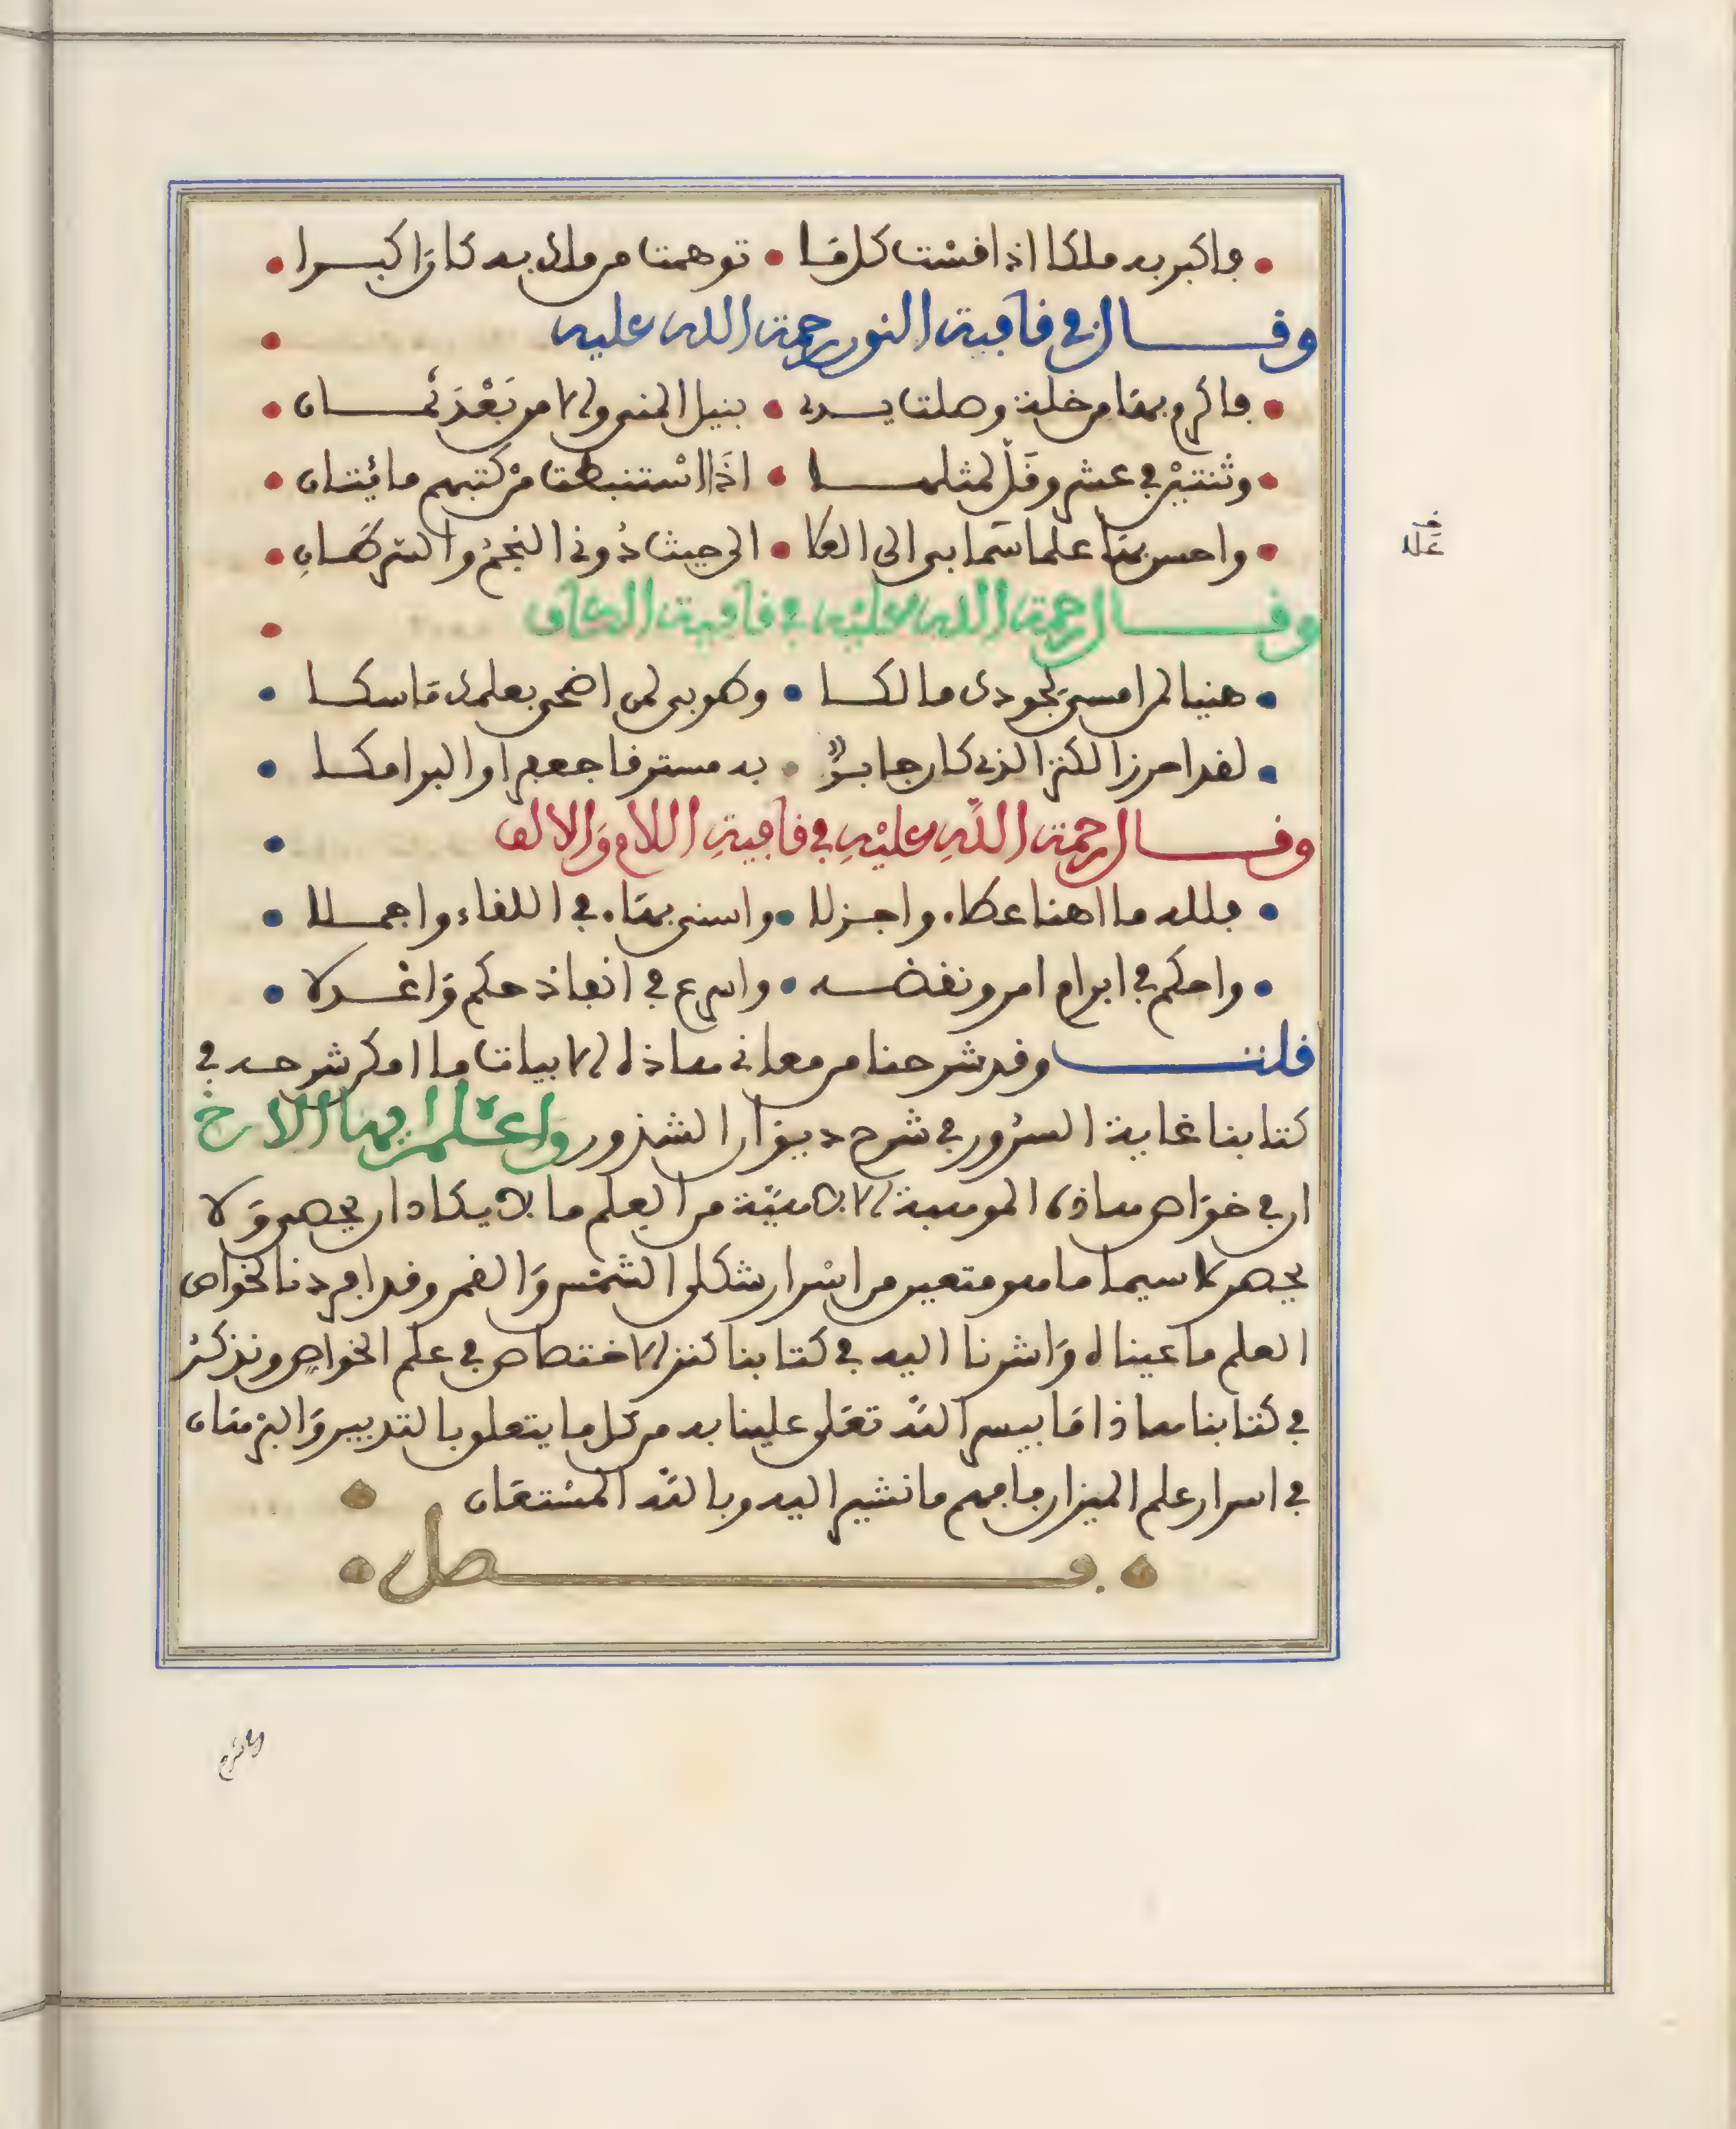 • فاكبر به ملكا اذا قست كلما • توهمت من ملك به كان اكبرا •
وقال في قافية النون رحمة الله عليه •
• فاكرم بها من خلة وصلت يدي • بنيل المنى والامن بعد ثمان •
• وثنتين في عشر وقل لمثلها • اذا استنبطت من كتبهم مائتان •
• واحسن بها علما سما بي الى العلا • الى حيث دوني النجم والسرطان •
وقال رحمة الله عليه في قافية الكاف •
• هنيا لمن امسى بجودك مالكا • وطوبى لمن اضحى بعلمك ماسكا •
• لقد احرز الكنز الذي كان جابر • به مسترقا جعفرا والبرامكا •
وقال رحمة الله عليه في قافية اللام والالف •
• فلله ما اهنا عطاء واجزلا • واسنى بهاء في اللقاء واجملا •
• واحكم في ابرام امر ونقضه • واسرع في انفاذ حكم واعدلا •
قلت وقد شرحنا من معاني هاذه الابيات ما امكن شرحه في
كتابنا غاية السرور في شرح ديوان الشذور واعلم ايها الاخ
ان في خواص هاذه الموهبة الالاهية من العلم ما لا يكاد ان يحصى ولا
يحصر لا سيما ما هو متعين من اسرار شكلى الشمس والقمر وقد افردنا لخواص
العلم ما عيناه واشرنا اليه في كتابنا كنز الاختصاص في علم الخواص ونذكر
في كتابنا هاذا ما ييسر الله تعلى علينا به من كل ما يتعلق بالتدبير والبرهان
في اسرار علم الميزان فافهم ما نشير اليه وبالله المستعان •
• فصل •